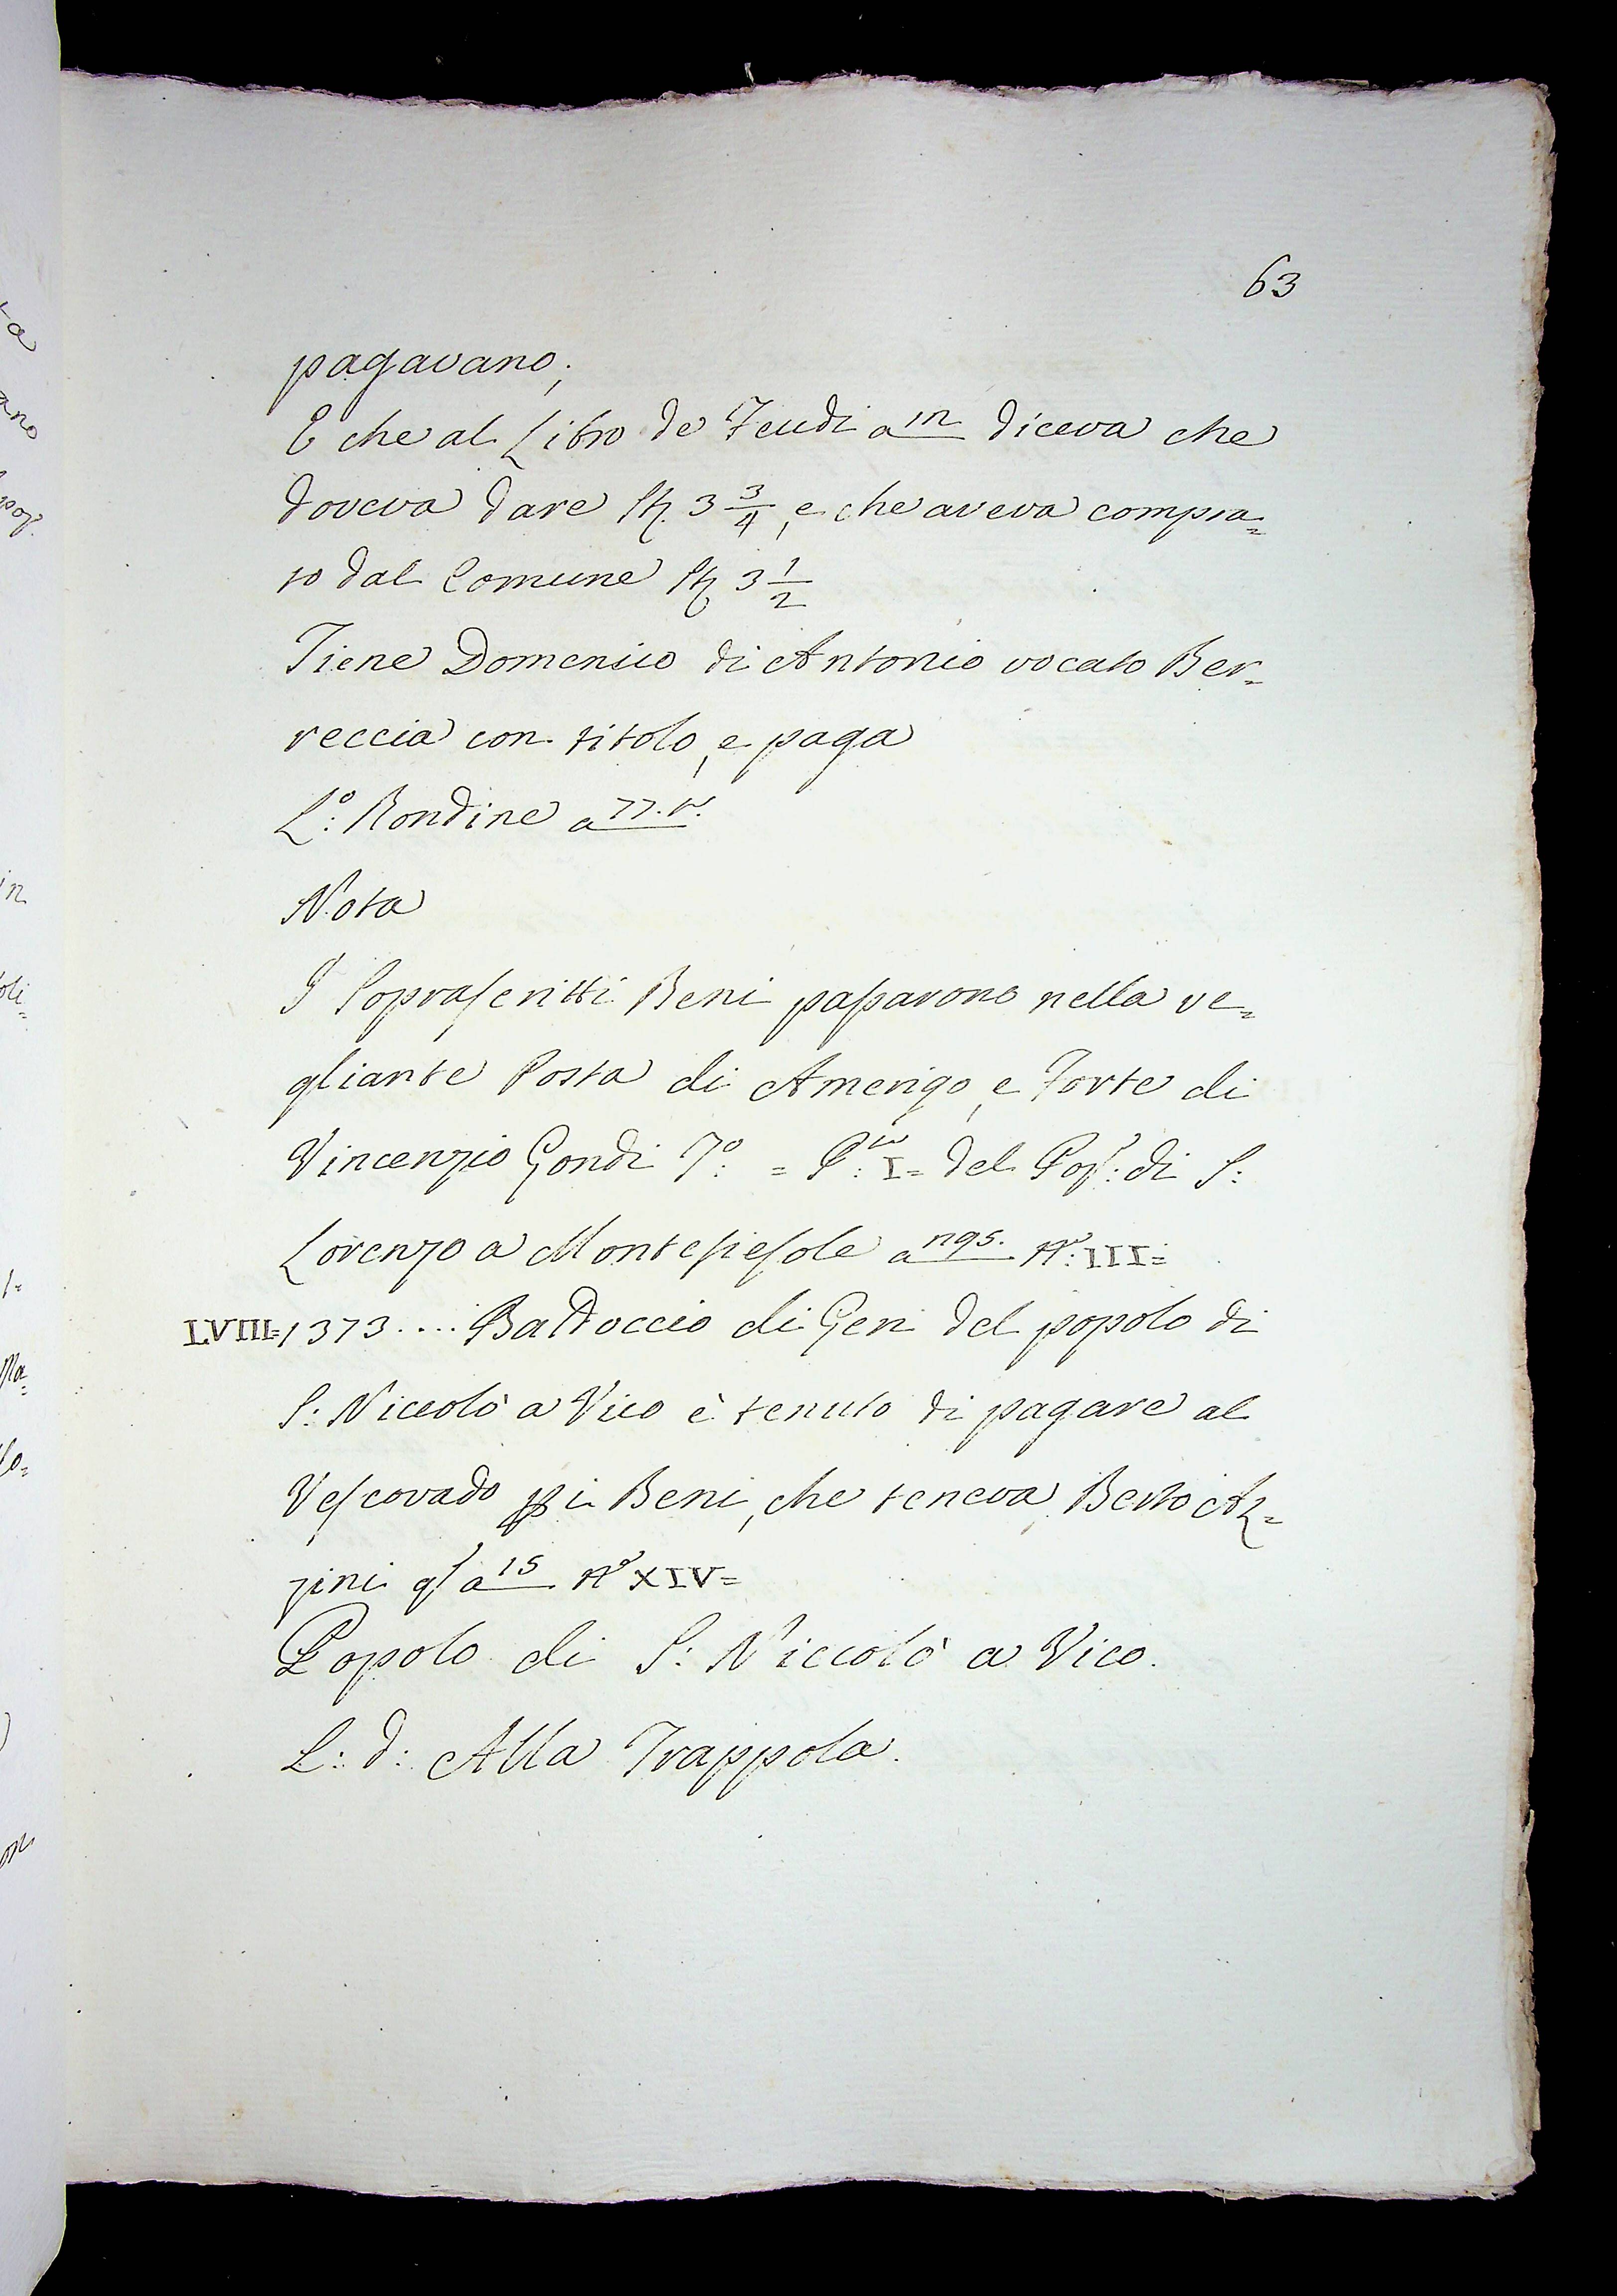 63
pagavano;
E che al Libro de Feudi a in diceva che
doveva dare St. 3 3/4, e che aveva compra=
to dal Comune St. 3 1/2
Tiene Domenico di Antonio vocato Ber=
reccia con titolo, e paga
L:º Rondine a 77. v.
Nota
I Soprascritti Beni passarono nella ve=
gliante Posta di Amerigo, e Forte di
Vincenzio Gondi T:º = P:ta I= del Pop:º di S:
Lorenzo a Montefiesole a 195. Nº: III=
LVIII= 1373.... Balduccio di Geri del popolo di
S: Niccolò a Vico è tenuto di pagare al
Vescovado pp i Beni, che teneva Berto Az=
zini qs a 15 Nº XIV=
Popolo di S: Niccolò a Vico.
L: d: Alla Trappola.